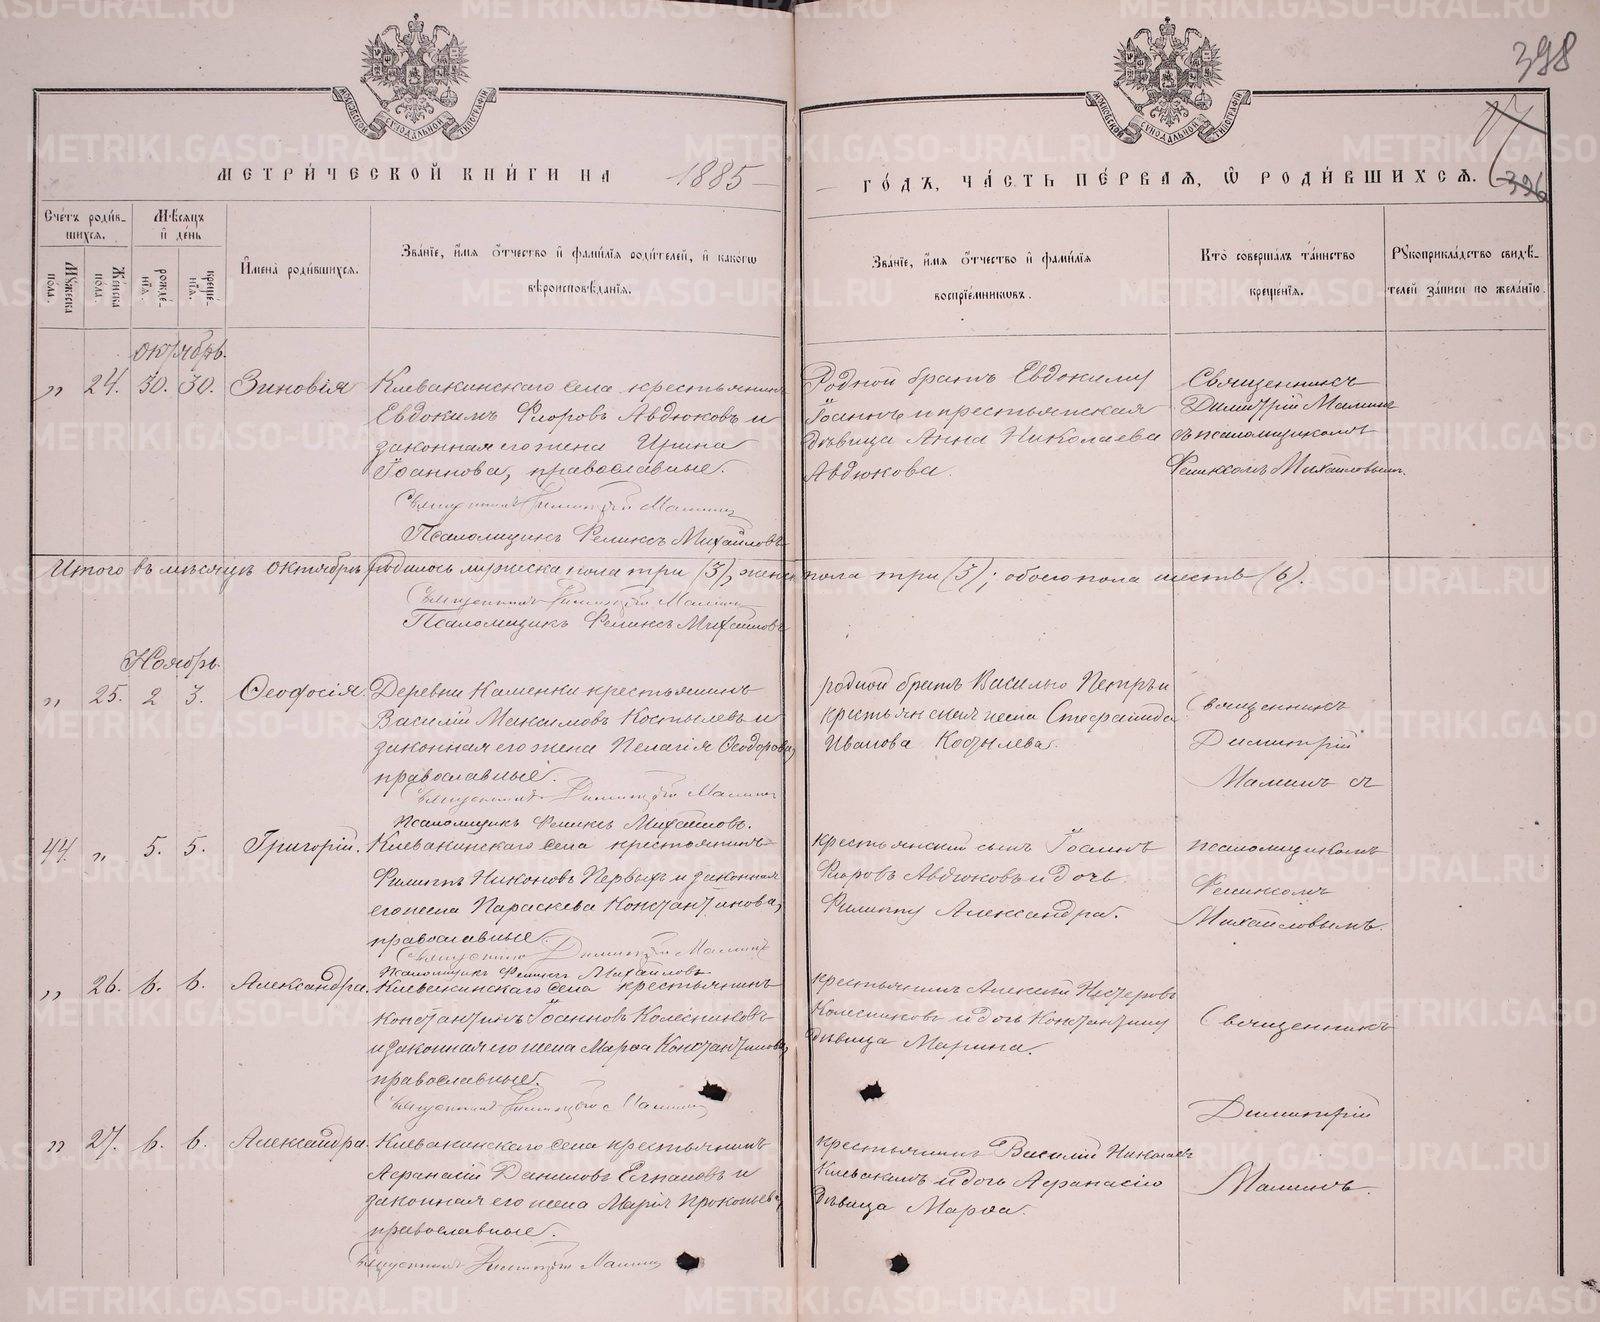 METRIKI.GASO-URAL.RU
398
396
МЕТРИ́ЧЕСКОЙ КНИ́ГИ НА 1885
ГО́ДЪ, ЧА́СТЬ ПЕ́РВАЯ, Ѿ РОДИ́ВШИХСЯ.
Сче́тъ роди́в-
шихся.
Мѣ́сяцъ
и де́нь
Мꙋ́жеска по́ла.
Же́нска по́ла.
рожде́-
нїѧ.
креще́-
нїѧ.
И́мена̀ роди́вшихся.
Зва́нїе, и́мя о́тчество и фами́лїя роди́телей, и како́гѡ
вѣроисповѣ́данїя.
Зва́нїе, и́мя о́тчество и фами́лїя
воспрїе́мниковъ.
Кто̀ соверша́лъ та́инство
креще́нїя.
Рꙋкоприкла́дство свидѣ́-
телей за́писи по жела́нїю.
Октябрь.
" 24. 30. 30. Зиновія
Клевакинскаго села крестьянинъ
Евдокимъ Флоровъ Авдюковъ и
законная его жена Ирина
Іоаннова, православные.
Священникъ Димитрій Маминъ
Псаломщикъ Феликсъ Михайловъ
Родной братъ Евдокиму
Іоаннъ и крестьянская
дѣвица Анна Николаева
Авдюкова.
Священникъ
Димитрій Маминъ
съ псаломщикомъ
Феликсомъ Михайловымъ.
Итого въ мѣсяцѣ Октябрѣ родилось мужеска пола три (3), женск пола три (3); обоего пола шесть (6).
Священникъ Димитрій Маминъ
Псаломщикъ Феликсъ Михайловъ
Ноябрь.
" 25. 2 3. Ѳеодосія.
Деревни Каменки крестьянинъ
Василій Максимовъ Костылевъ и
законная его жена Пелагія Ѳеодорова,
православные.
Священникъ Димитрій Маминъ
Псаломщикъ Феликсъ Михайловъ.
родной братъ Василью Петръ и
крестьянская жена Стефанида
Иванова Костылева.
Священникъ
Димитрій
Маминъ съ
44. " 5. 5. Григорій.
Клевакинскаго села крестьянинъ
Филиппъ Никоновъ Первыхъ и законная
его жена Параскева Константинова,
православные.
Священникъ Димитрій Маминъ
Псаломщикъ Феликсъ Михайловъ
крестьянскій сынъ Іоаннъ
Флоровъ Авдюковъ и дочь
Филиппу Александра.
псаломщикомъ
Феликсомъ
Михайловымъ.
" 26. 6. 6. Александра.
Клевакинскаго села крестьянинъ
Константинъ Іоанновъ Колесниковъ
и законная его жена Марѳа Константинова,
православные.
Священникъ Димитрій Маминъ
крестьянинъ Алексѣй Несторовъ
Колесниковъ и дочь Константину
дѣвица Марина.
Священникъ
Димитрій
Маминъ.
" 27. 6. 6. Александра.
Клевакинскаго села крестьянинъ
Аѳанасій Даниловъ Елпановъ и
законная его жена Марія Прокопьева,
православные.
Священникъ Димитрій Маминъ
крестьянинъ Василій Николаевъ
Клевакинъ и дочь Аѳанасію
дѣвица Марѳа.